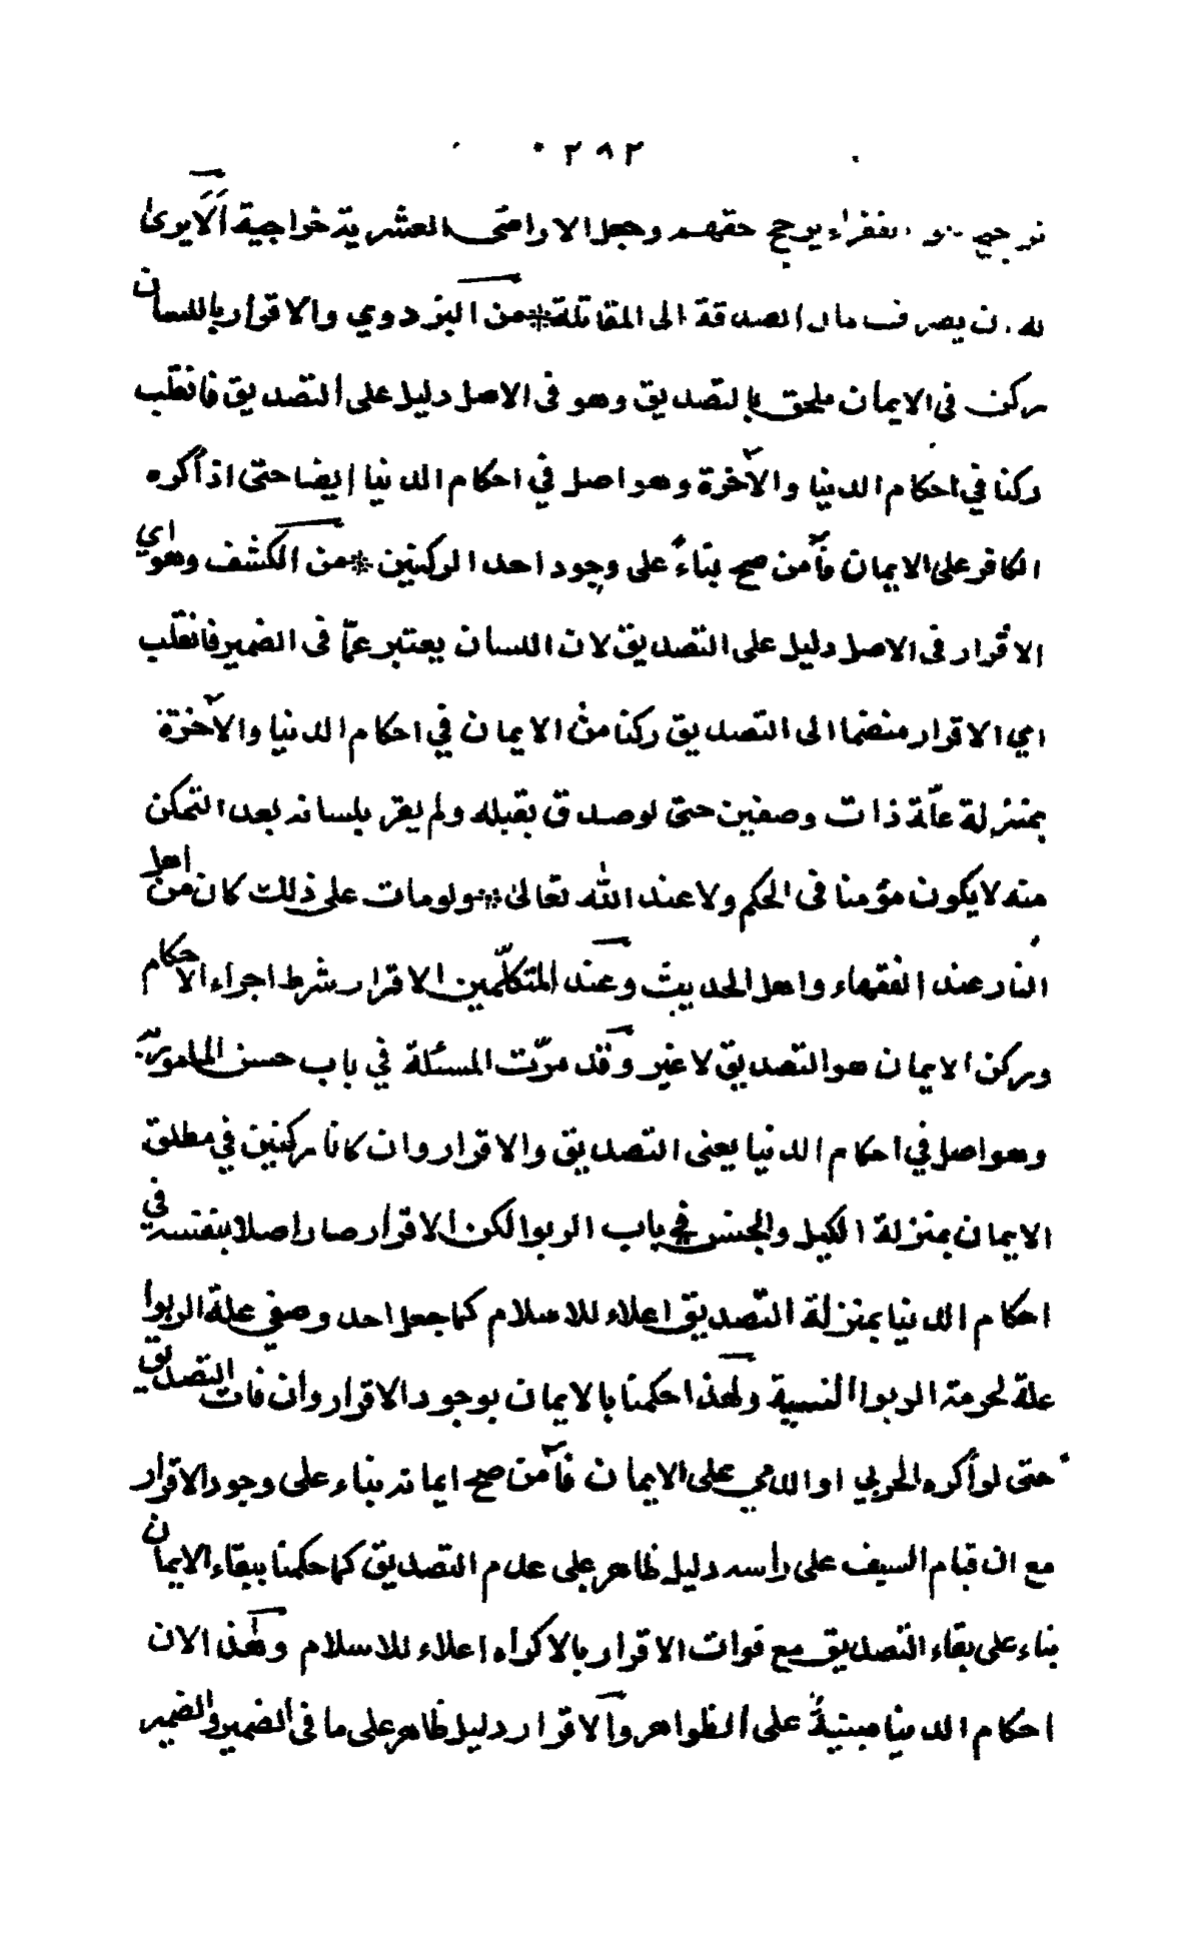 ٢٨٢
الفقراء يرجح حقهم وجعل الاراضى العشرية خراجية ألا يرى
ان يصرف مال الصدقة الى المقاتلة * من البزدوي والاقرار باللسان
ركن فى الايمان ملحق بالتصديق وهو فى الاصل دليل على التصديق فانقلب
ركنا في احكام الدنيا والآخرة وهو اصل في احكام الدنيا ايضا حتى اذ أكره
الكافر على الايمان فآمن صح بناءً على وجود احد الركنين * من الكشف وهو اي
الاقرار فى الاصل دليل على التصديق لان اللسان يعتبر عمّا فى الضمير فانقلب
اي الاقرار منضما الى التصديق ركنا من الايمان في احكام الدنيا والآخرة
بمنزلة علّة ذات وصفين حتى لو صدق بقبله ولم يقر بلسانه بعد التمكن
منه لا يكون مؤمنا فى الحكم ولا عند الله تعالىٰ * ولو مات على ذلك كان من اهل
النار عند الفقهاء واهل الحديث وعند المتكلّمين الاقرار شرط اجراء الاحكام
وركن الايمان هو التصديق لا غير وقد مرّت المسئلة في باب حسن المامور به
وهو اصل في احكام الدنيا يعنى التصديق والاقرار وان كانا ركنين في مطلق
الايمان بمنزلة الكيل والجنس في باب الربوا لكن الاقرار صار اصلا بنفسه في
احكام الدنيا بمنزلة التصديق اعلاء للاسلام كما جعل احد وصفي علة الربوا
علة لحرمة الربوا النسيية ولهذا حكمنا بالايمان بوجود الاقرار وان فات التصديق
حتى لو أكره الحربي او الذمي على الايمان فآمن صح ايمانه بناء على وجود الاقرار
مع ان قيام السيف على رأسه دليل ظاهر على عدم التصديق كما حكمنا ببقاء الايمان
بناء على بقاء التصديق مع فوات الاقرار بالاكراه اعلاء للاسلام وهذا لان
احكام الدنيا مبنيةٌ على الظواهر والاقرار دليل ظاهر على ما فى الضمير والضمير